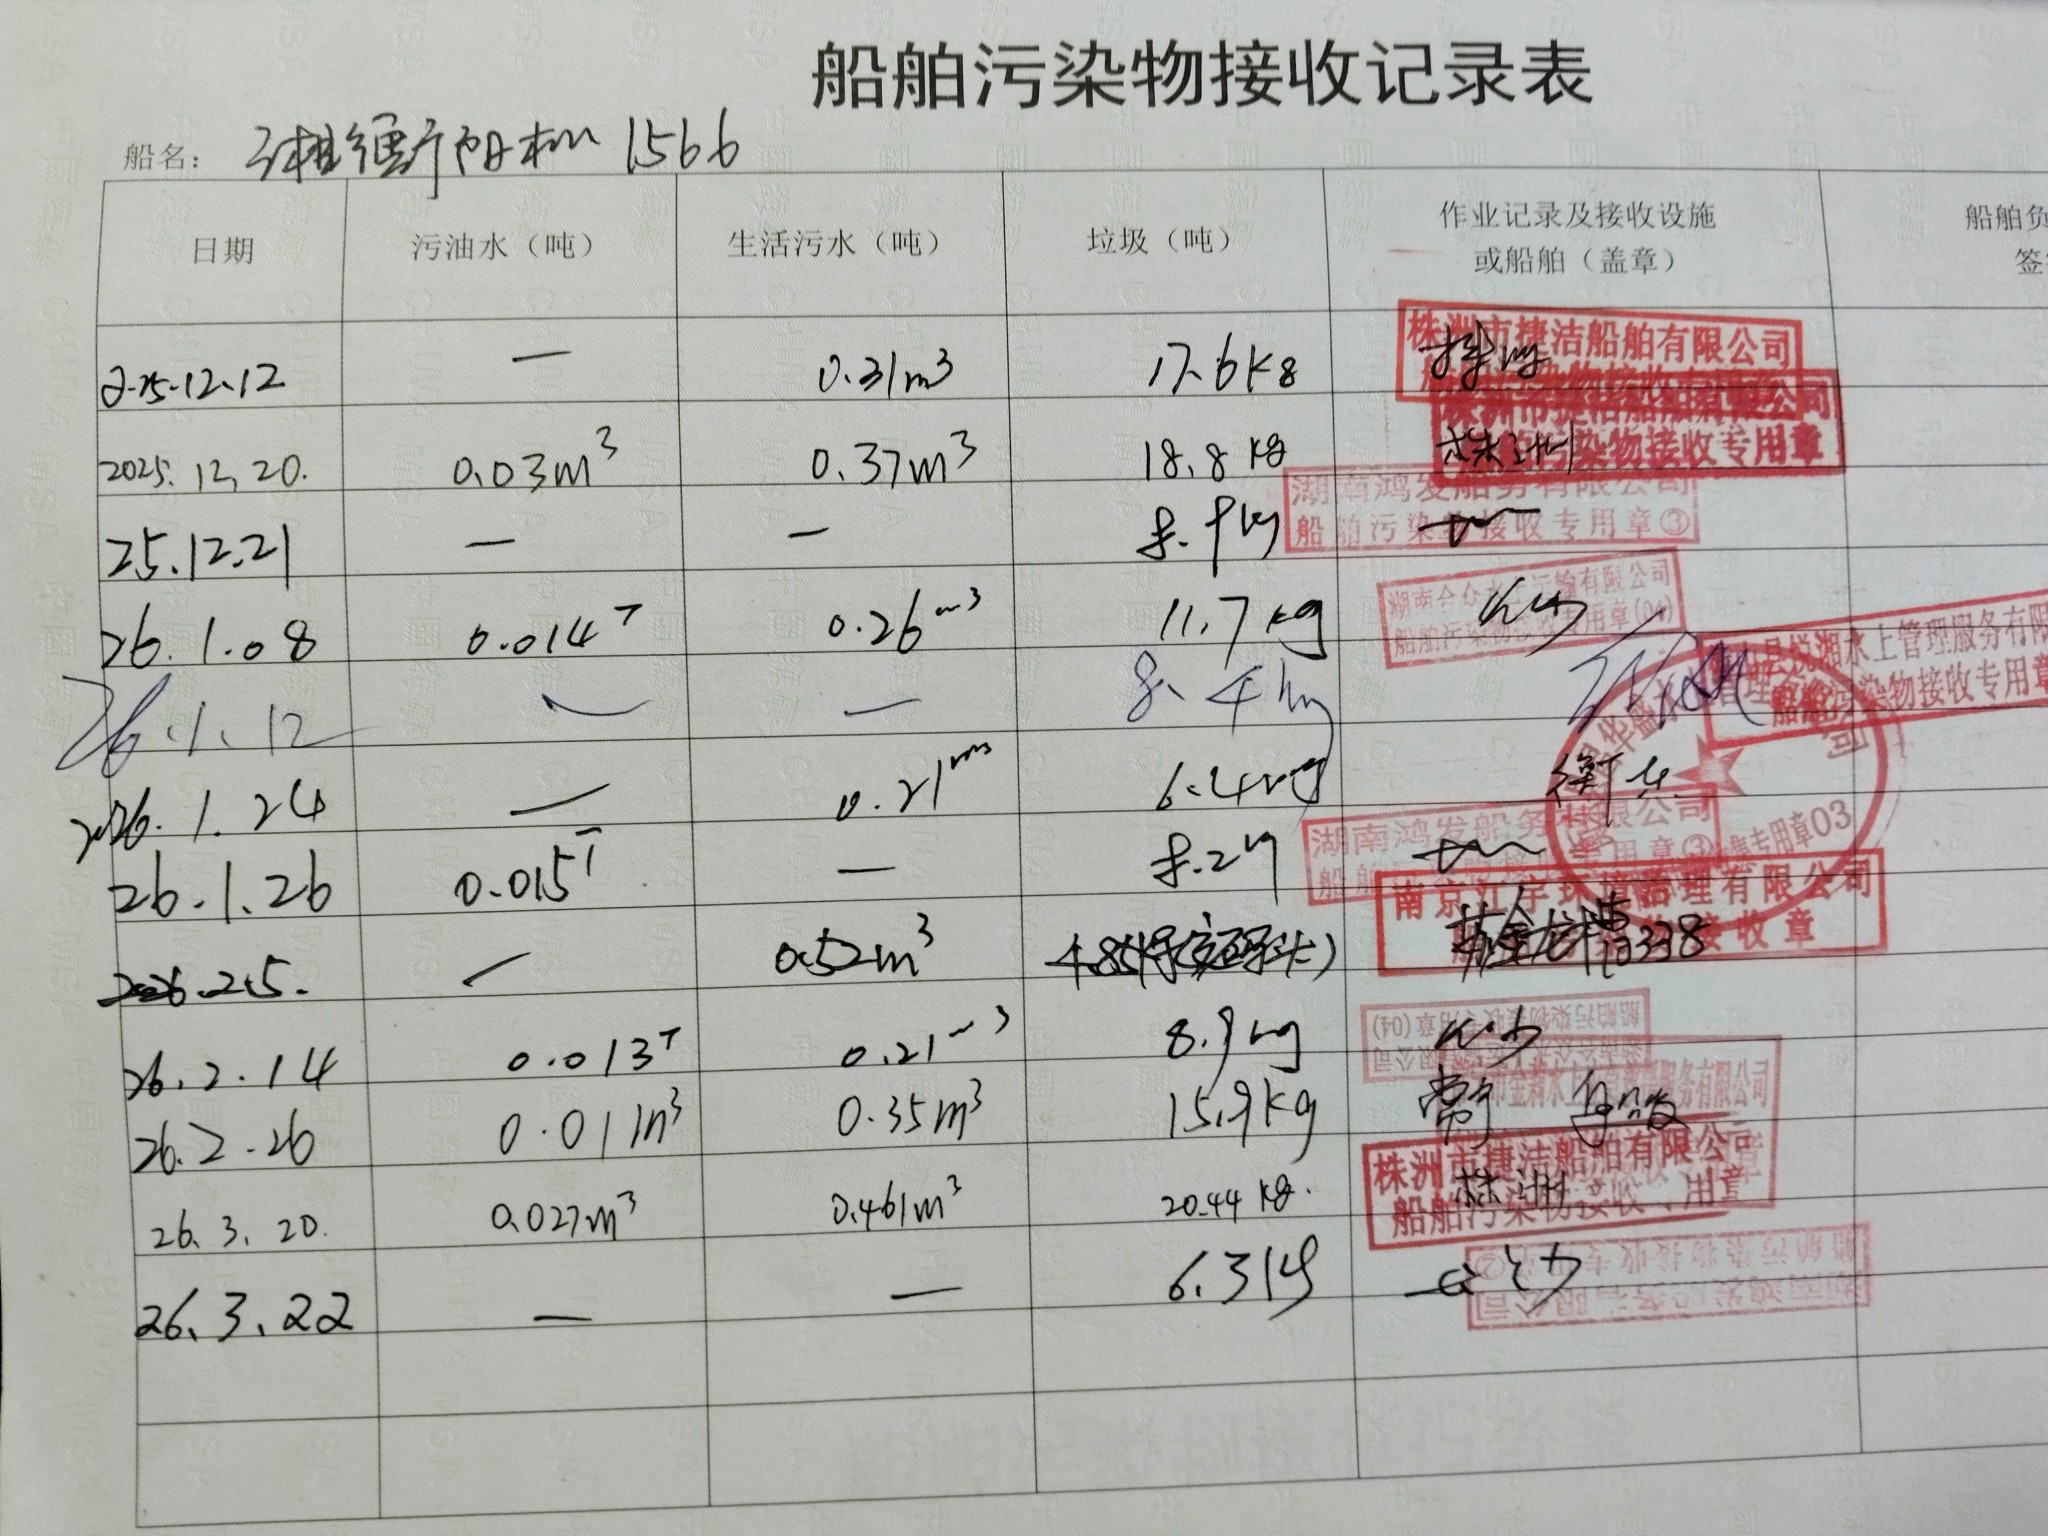 船舶污染物接收记录表
船名： 湘衡阳机 1566
日期 污油水（吨） 生活污水（吨） 垃圾（吨） 作业记录及接收设施 船舶负
或船舶（盖章） 签
株洲市捷洁船舶有限公司
2025.12.12 — 0.31m³ 17.6kg
2025.12.20. 0.03m³ 0.37m³ 18.8kg 株洲
株洲市捷洁船舶有限公司
污染物接收专用章
湖南鸿发船务有限公司
船舶污染物接收专用章③
25.12.21 — — 8.9kg
26.1.08 0.014T 0.26m³ 11.7kg 长沙
船舶污染物接收专用章(04)
县悦湘水上管理服务有限
船舶污染物接收专用章
26.1.12 — — 8.4kg
2026.1.24 — 0.21m³ 6.4kg 衡东
专用章03
湖南鸿发船务有限公司
26.1.26 0.015T — 8.2kg
南京江宇环境治理有限公司
接收章
2026.2.5. — 0.52m³ 338
船舶污染物接收专用章(04)
26.2.14 0.013T 0.21m³ 8.9kg 长沙
26.2.26 0.011m³ 0.35m³ 15.9kg
株洲市捷洁船舶有限公司
船舶污染物接收专用章
26.3.20. 0.027m³ 0.461m³ 20.44kg. 株洲
湖南鸿发船务有限公司
船舶污染物接收专用章②
26.3.22 — — 6.3kg